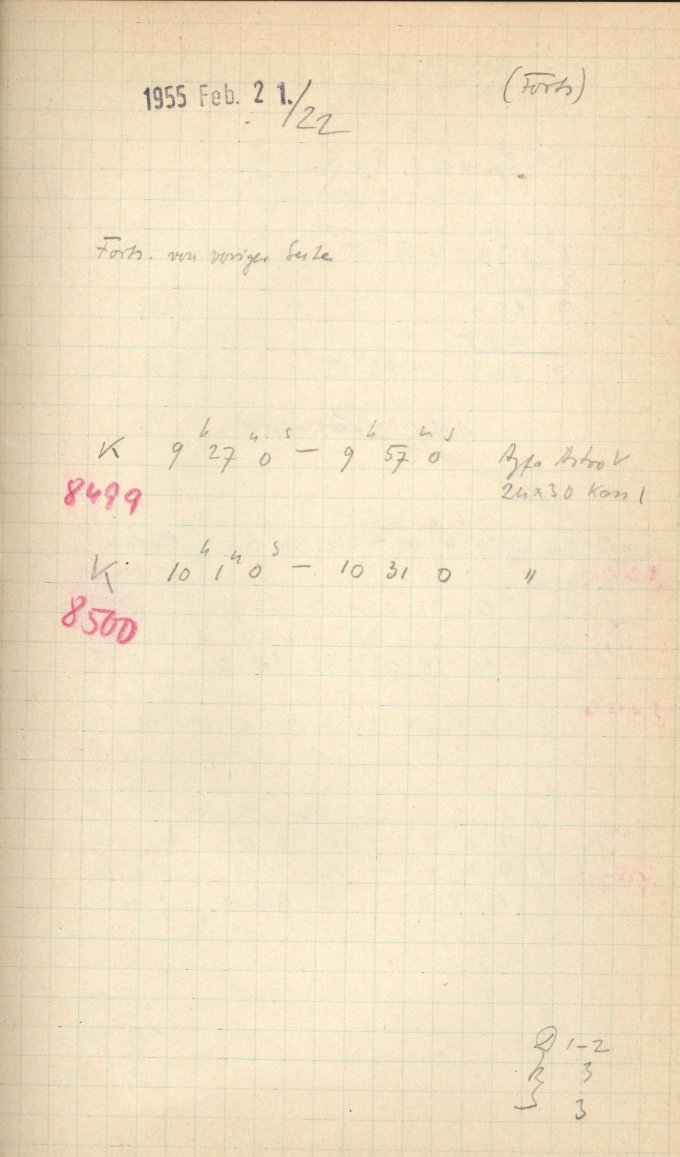 1955 Feb. 21./22 (Forts)
Forts. von voriger Seite
K 9h 27m 0s – 9h 57m 0s Agfa Astro V
8499 24x30 Kass 1
K 10h 1m 0s – 10 31 0 "
8500
1–2
R 3
S 3